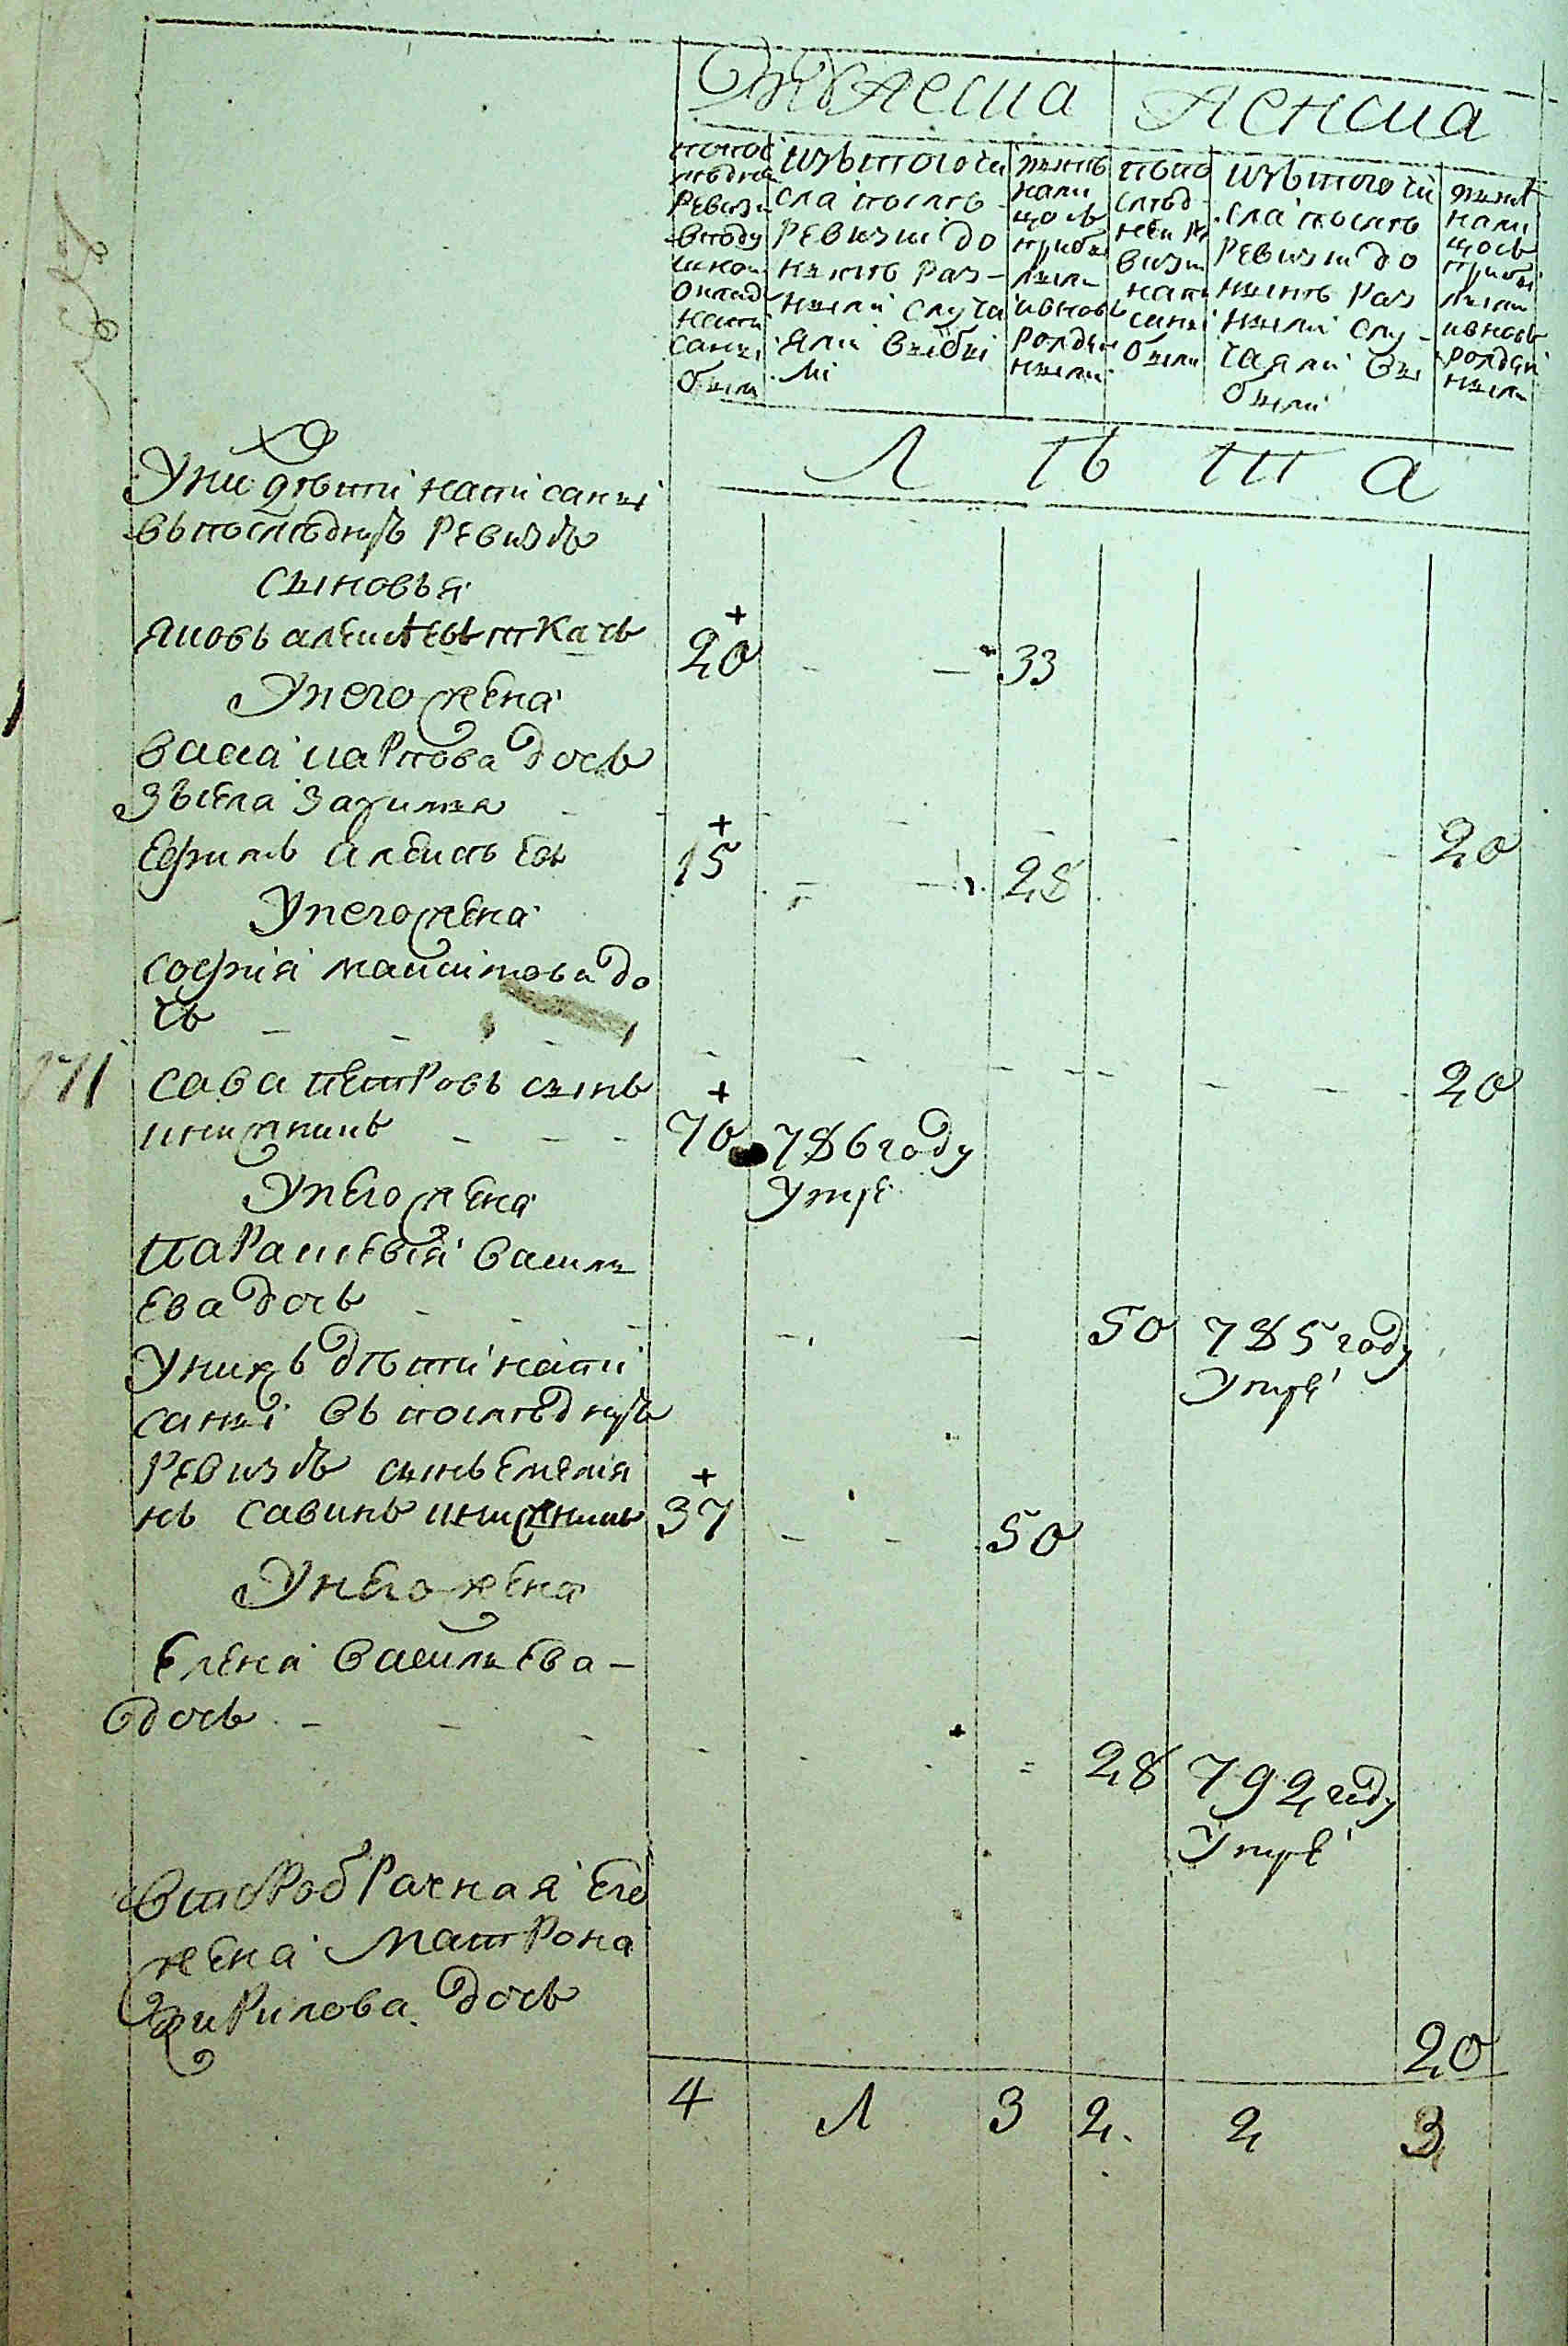 Мужеска Женска
попос
лѣдней
Ревизи
вподу
шном
оклад
напи
саны
были
изътого чи
сла послѣ
Ревизіи до
нынѣ Раз-
ными случа
ями выбы
ли
нынѣ
нали
цось
прибы
лыми
ивновь
рожден
ными
попо
слѣд
ней Ре
визи
напи
саны
были
изътого чи
сла послѣ
Ревизіи до
нынѣ Раз
ными слу-
чаями вы
были
нынѣ
нали
цось
прибы
лыми
ивновь
рожден
ными
Л ѣ т а
Унихъ дѣти написаны
въпослѣднуъ Ревизѣъ
сыновья
Яковъ алексѣевъ ткачь + 20 - - 33
Унего жена
васа карпова дочь
зъсела - - - - - - - 20
Ефимъ алексѣевъ + 15 - - 28
Унего жена
софія максимова до
чь - - - - - - - 20
171 сава петровъ сынъ
книжникъ - - - + 70 786 году
умре
Унего жена
параскевія василь
ева дочь - - - - - 50 785 году
умре
Унихъ дѣти напи
саны въ послѣднуъ
Ревизѣъ сынъ Емелія
нъ савинъ книжникъ + 37 - - 50
Унего жена
Елена васильева -
дочь - - - - - = 28 792 году
умре
второбрачная Его
жена матрона
кирилова дочь 20
4 1 3 2. 2 3